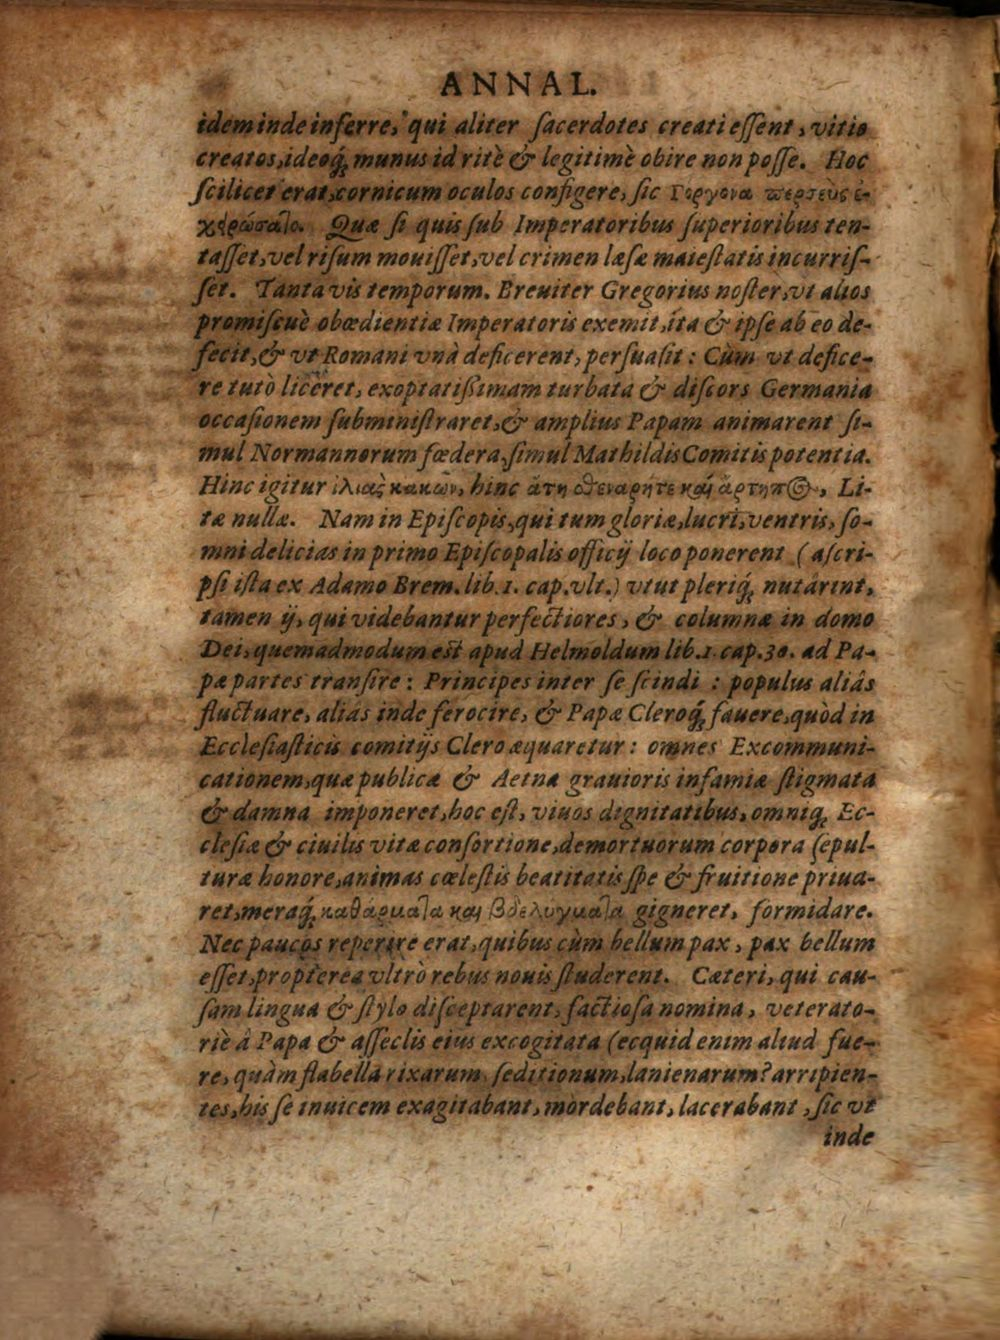 ANNAL.
idem inde inferre, qui aliter ſacerdotes creati eſſent, vitio
creatos, ideoq́; munus id ritè & legitimè obire non poſſe. Hoc
ſcilicet erat, cornicum oculos configere, ſic Γόργονα περσεὺς ἐ-
χειρώσατο. Quæ ſi quis ſub Imperatoribus ſuperioribus ten-
taſſet, vel riſum mouiſſet, vel crimen læſæ maieſtatis incurriſ-
ſet. Tanta vis temporum. Breuiter Gregorius noſter, vt alios
promiſcuè obœdientiæ Imperatoris exemit, ita & ipſe ab eo de-
fecit, & vt Romani vnà deficerent, perſuaſit: Cùm vt defice-
re tutò liceret, exoptatißimam turbata & diſcors Germania
occaſionem ſubminiſtraret, & amplius Papam animarent ſi-
mul Normannorum fœdera, ſimul Mathildis Comitis potentia.
Hinc igitur ἰλιὰς κακῶν, hinc ἄτη σθεναρήτε καὶ ἄρτηπος, Li-
tæ nullæ. Nam in Epiſcopis, qui tum gloriæ, lucri, ventris, ſo-
mni delicias in primo Epiſcopalis officij loco ponerent (aſcri-
pſi iſta ex Adamo Brem. lib. 1. cap. vlt.) vtut pleriq́; nutârint,
tamen ij, qui videbantur perfectiores, & columnæ in domo
Dei, quemadmodum eſt apud Helmoldum lib. 1. cap. 30. ad Pa-
pæ partes tranſire: Principes inter ſe ſcindi: populus aliâs
fluctuare, aliâs inde ferocire, & Papæ Cleroq́; fauere, quòd in
Eccleſiaſticis comitijs Clero æquaretur: omnes Excommuni-
cationem, quæ publicæ & Aetnæ grauioris infamiæ ſtigmata
& damna imponeret, hoc eſt, viuos dignitatibus, omniq́; Ec-
cleſiæ & ciuilis vitæ conſortione, demortuorum corpora ſepul-
turæ honore, animas cœleſtis beatitatis ſpe & fruitione priua-
ret, meraq́; καθάρματα καὶ βδελύγματα gigneret, formidare.
Nec paucos reperire erat, quibus cùm bellum pax, pax bellum
eſſet, propterea vltrò rebus nouis ſtuderent. Cæteri, qui cau-
ſam lingua & ſtylo diſceptarent, factioſa nomina, veterato-
riè à Papa & aſſeclis eius excogitata (ecquid enim aliud fue-
re, quàm flabella rixarum, ſeditionum, lanienarum? arripien-
tes, his ſe inuicem exagitabant, mordebant, lacerabant, ſic vt
inde